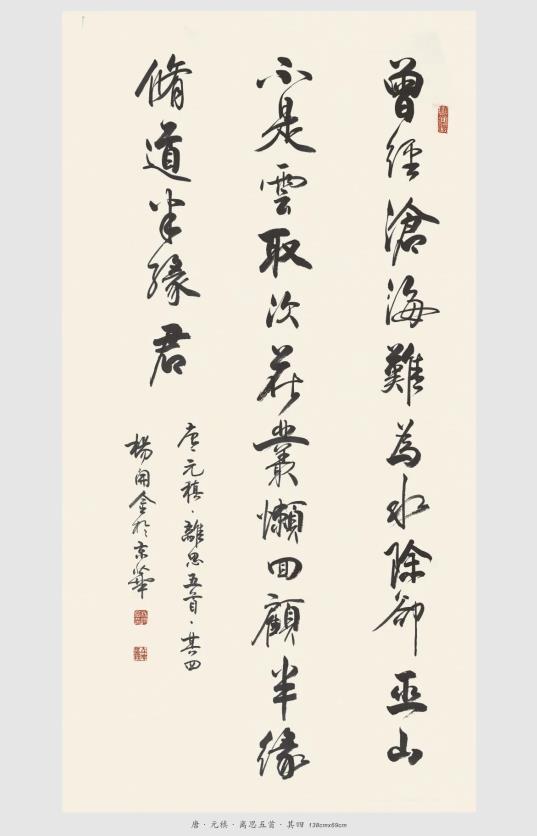 曾經滄海難為水除卻巫山
不是雲取次花叢懶回顧半緣
脩道半緣君
唐元稹·離思五首·其四
楊開金於京華
唐·元稹·离思五首·其四 138cmx69cm